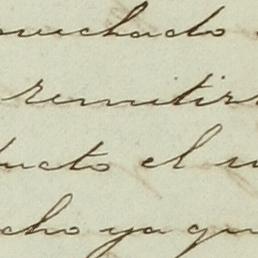 ouchado
remitir
ucto el
cho ya que